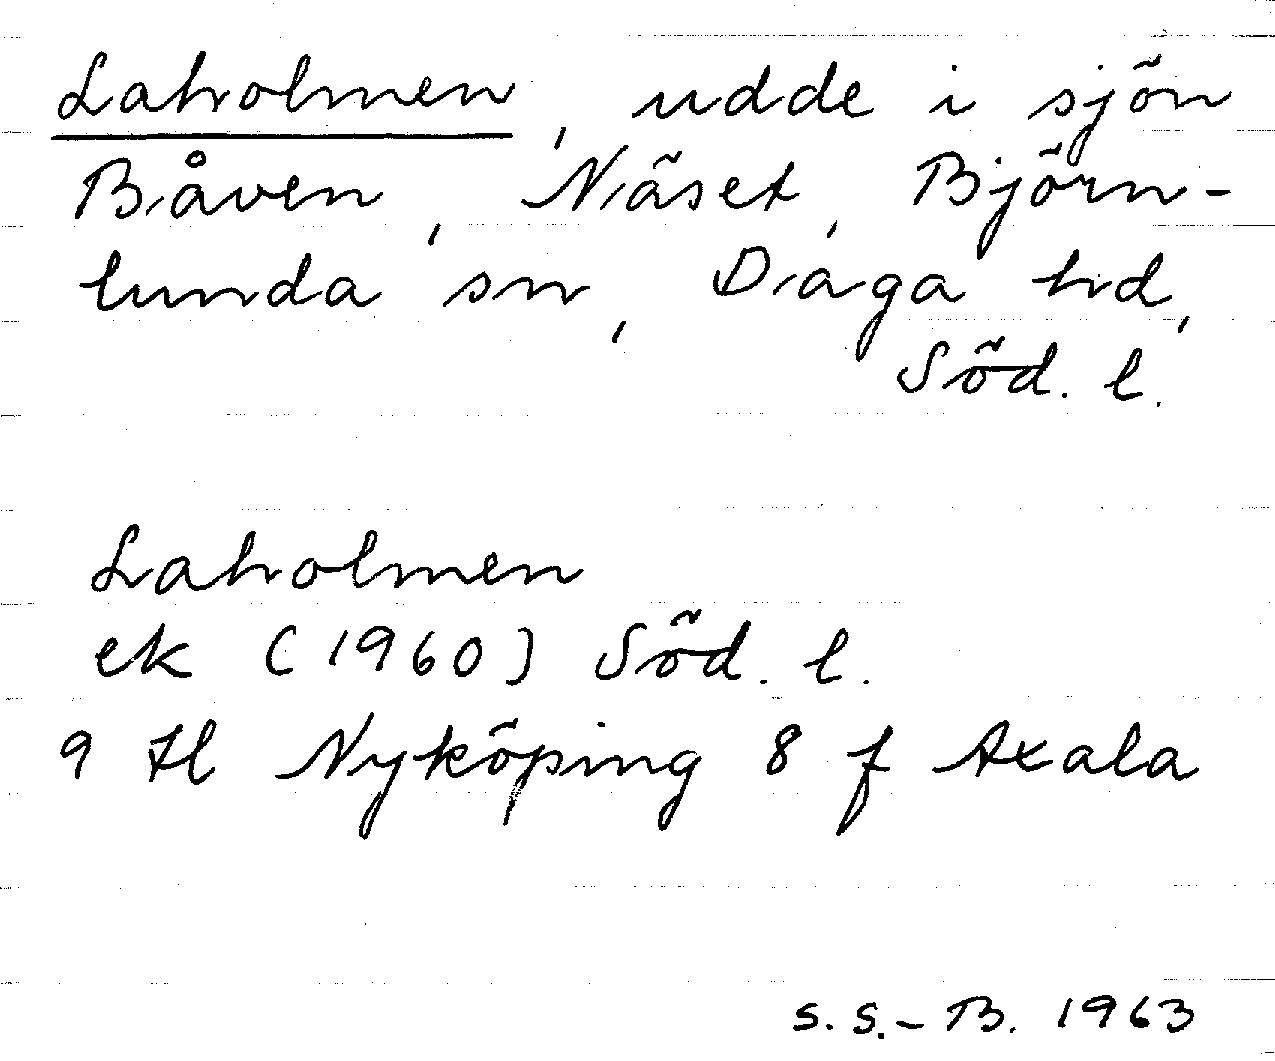 Laholmen, udde i sjön
Båven, Näset, Björn-
lunda sn, Daga hd,
Söd. l.
Laholmen
ek (1960) Söd. l.
9 H l Nyköping 8 f Axala
S. S.-B. 1963